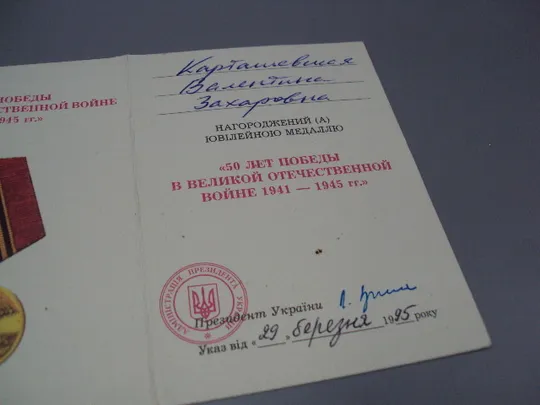 Карташевская
Валентина
Захаровна
НАГОРОДЖЕНИЙ (А)
ЮВІЛЕЙНОЮ МЕДАЛЛЮ
«50 ЛЕТ ПОБЕДЫ
В ВЕЛИКОЙ ОТЕЧЕСТВЕННОЙ
ВОЙНЕ 1941 — 1945 гг.»
АДМІНІСТРАЦІЯ ПРЕЗИДЕНТА УКРАЇНИ
Президент України
Указ від «29» березня 1995 року
ПОБЕДЫ
ЕСТВЕННОЙ ВОЙНЕ
1945 гг.»